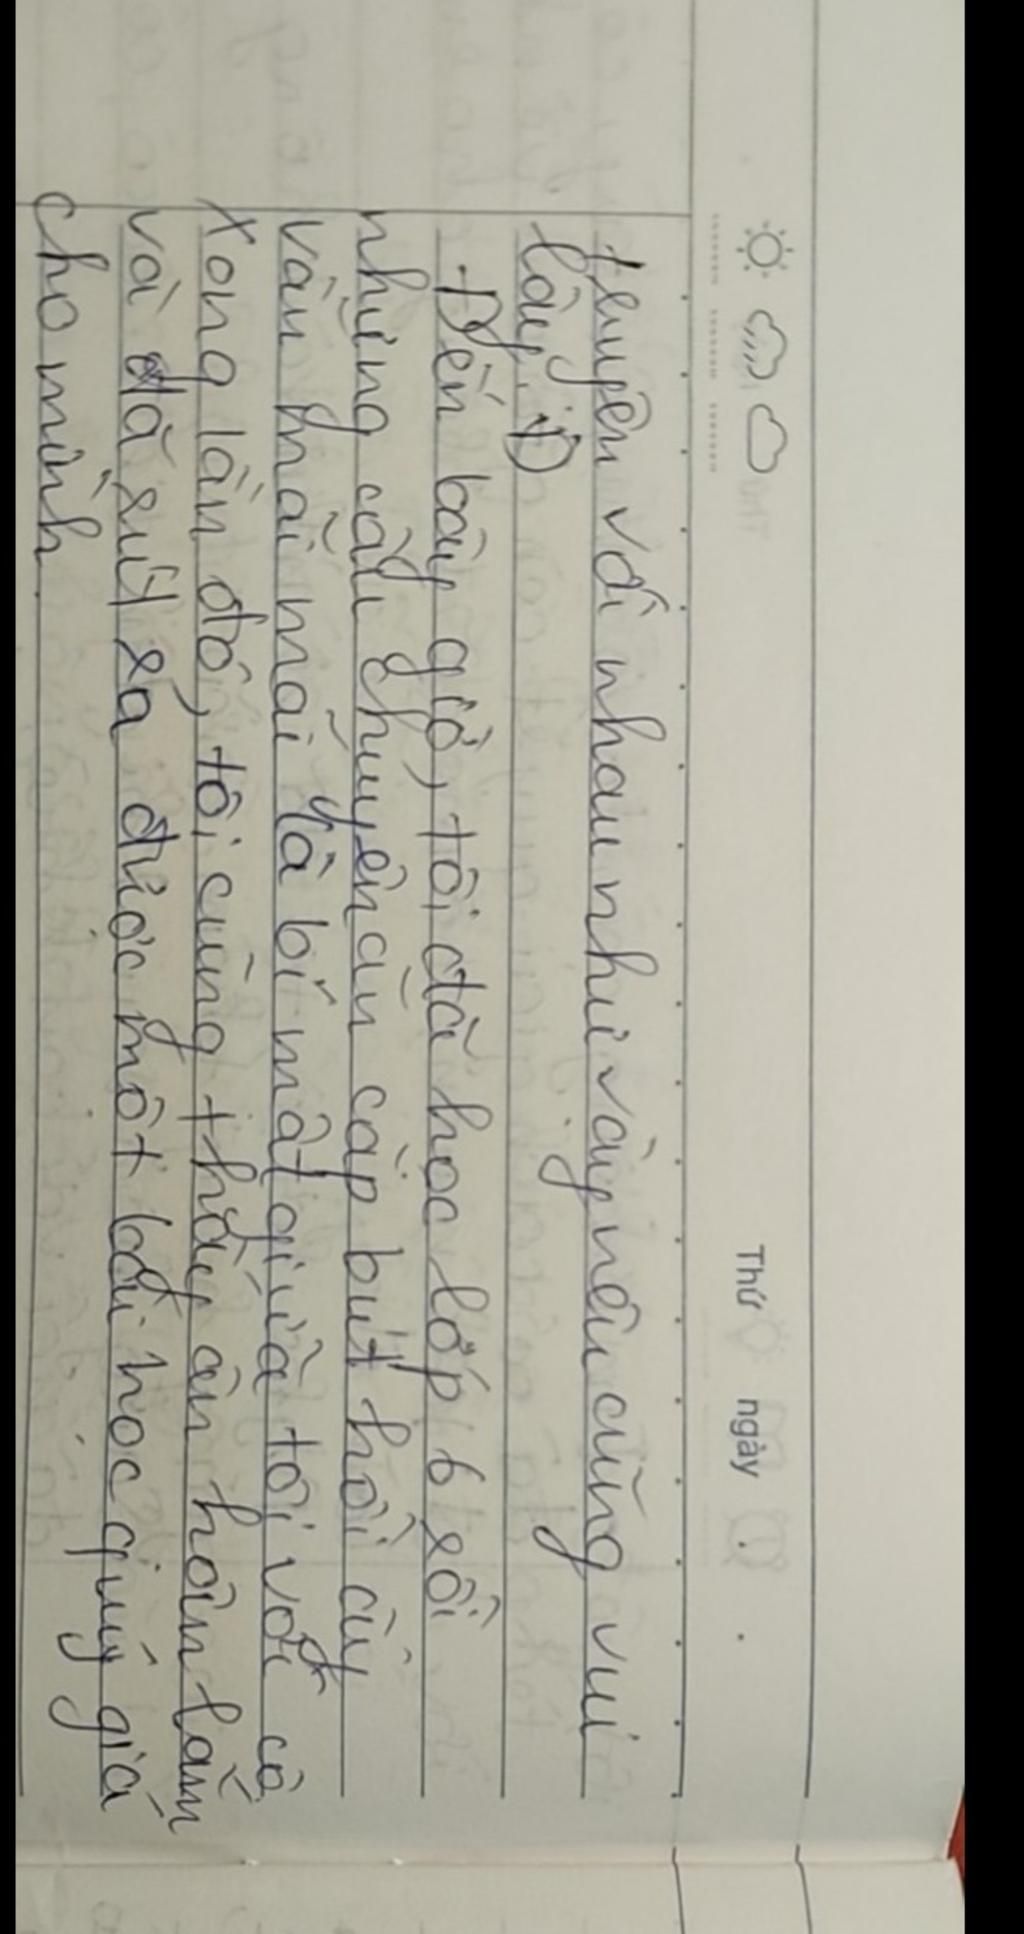 Thứ ngày . .
truyện với nhau như vậy nên cũng vui
lây. Đ
Đến bây giờ, tôi đã học lớp 6 rồi
những câu chuyện ăn cắp bút hồi ấy
vẫn mãi mãi là bí mật giữa tôi với cô
Xong lần đó, tôi cũng thấy ân hận lắm
và đã rút ra được một bài học quý giá
cho mình.